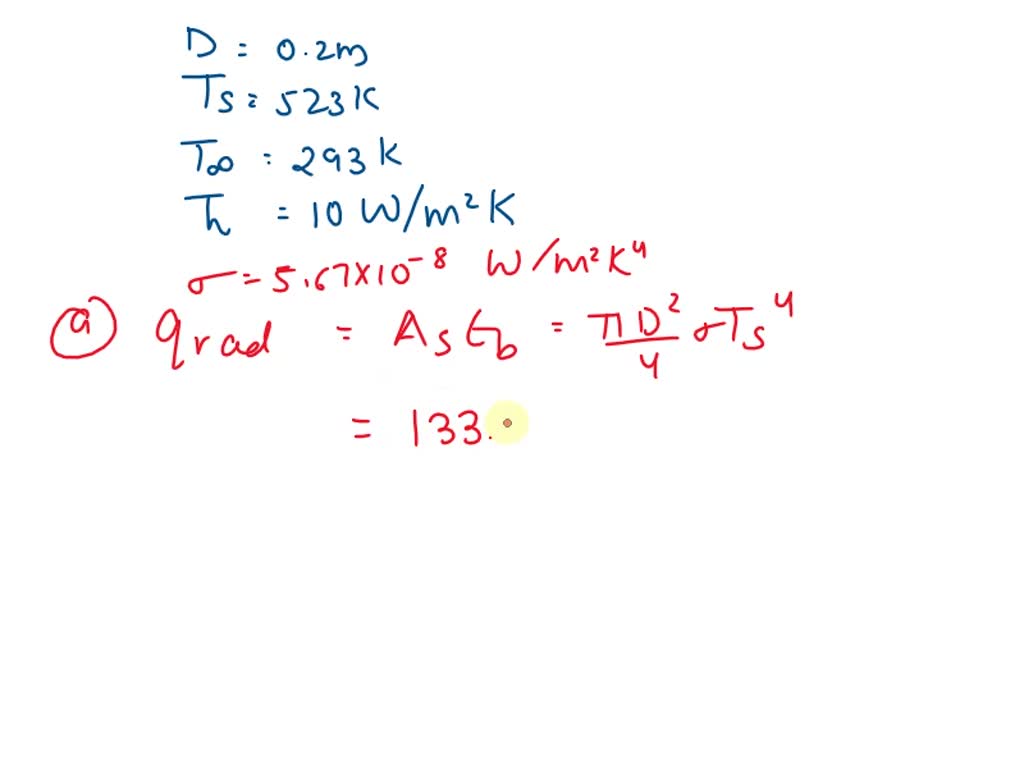 D = 0.2m
Ts = 523K
T∞ = 293 K
h̄ = 10 W/m²K
σ = 5.67×10⁻⁸ W/m²K⁴
(a) qrad = AsEb = πD²/4 σTs⁴
= 133.